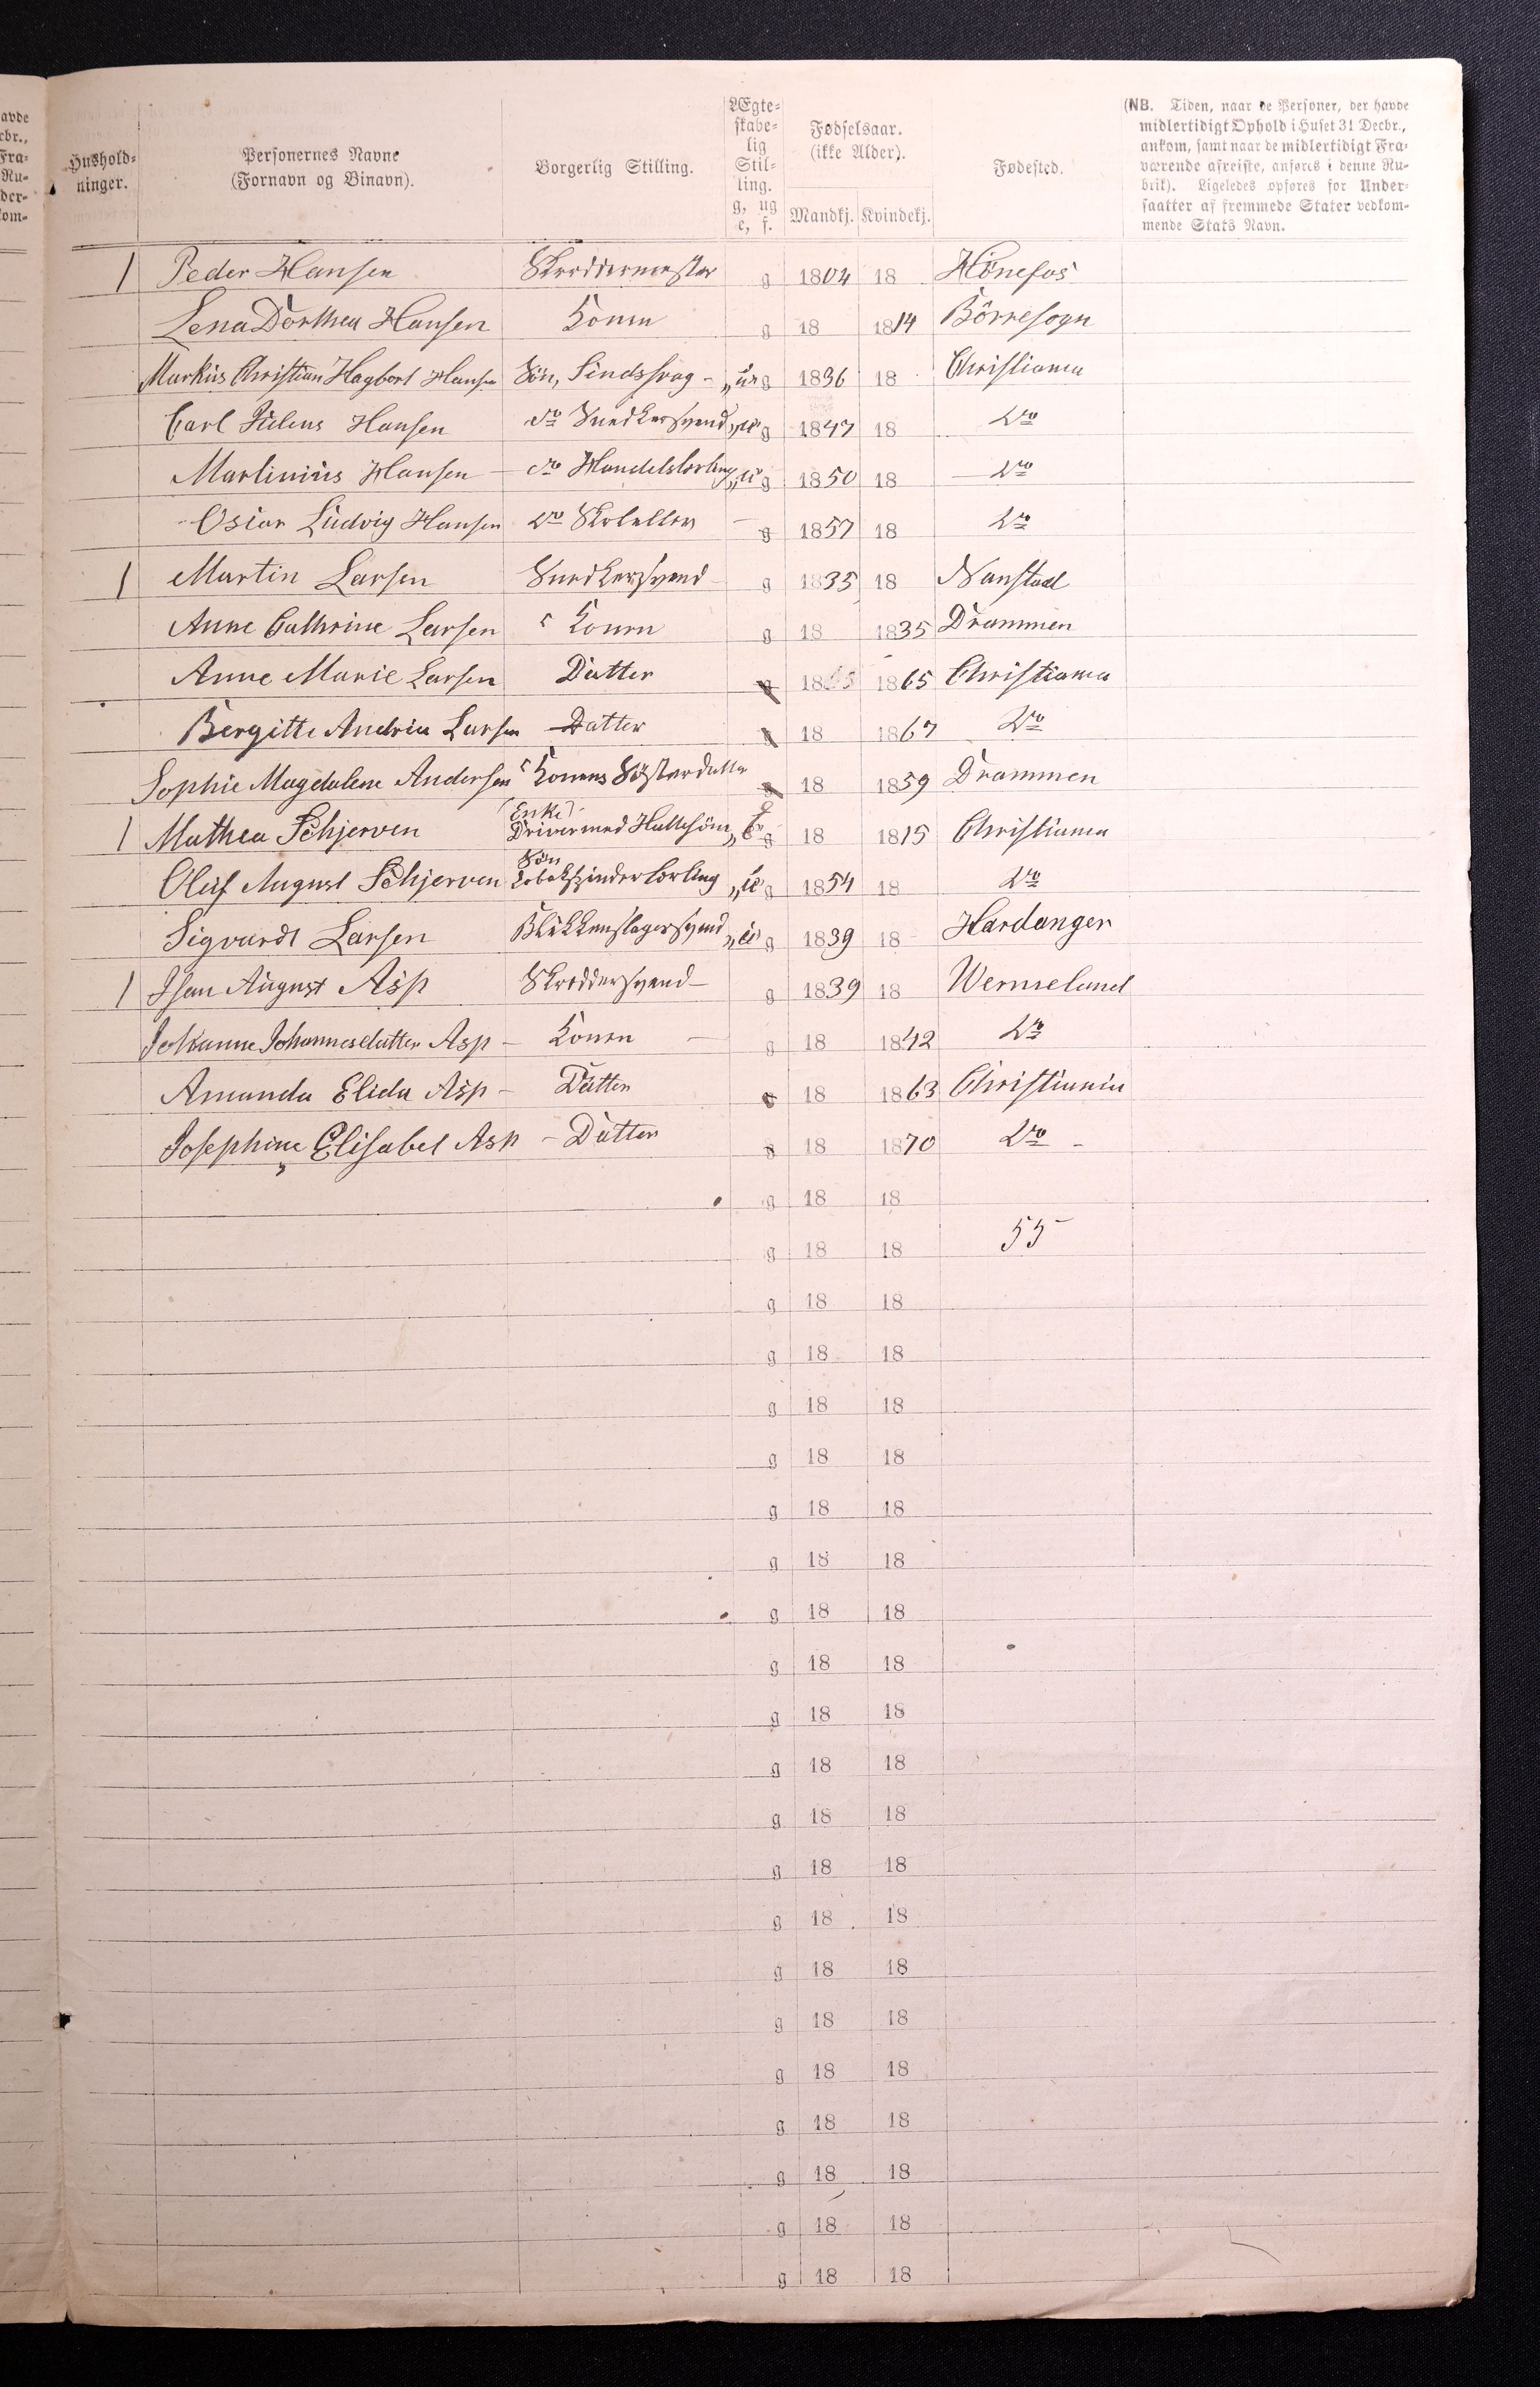 avde
cbr.,
Fra-
Ru-
der-
kom-
Hushold-
ninger.
Personernes Navne
(Fornavn og Binavn).
Borgerlig Stilling.
Ægte-
skabe-
lig
Stil-
ling.
g, ug
e, f.
Fødselsaar.
(ikke Alder).
Mandkj. Kvindekj.
Fødested.
(NB. Tiden, naar de Personer, der havde
midlertidigt Ophold i Huset 31 Decbr.,
ankom, samt naar de midlertidigt Fra-
værende afreiste, anføres i denne Ru-
brik). Ligeledes opføres for Under-
saatter af fremmede Stater vedkom-
mende Stats Navn.
1 Peder Hansen Skreddermester g 1804 18 Hönefos
Lena Dorthea Hansen Konen g 18 1814 Börresogn
Markus Christian Hagbort Hansen Sön, Sindssvag - „ug 1836 18 Christiania
Carl Julius Hansen do Snedkersvend „ug 1847 18 Do
Martinius Hansen do Handelslærling „ug 1850 18 Do
Oscar Ludvig Hansen Do Skoleelev - g 1857 18 Do
1 Martin Larsen Snedkersvend g 1835 18 Nanstad
Anne Cathrine Larsen Konen g 18 1835 Drammen
Anne Marie Larsen Datter g 18 1865 Christiania
Bergitte Andrea Larsen Datter g 18 1867 Do
Sophie Magdalene Andersen Konens Sösterdatter g 18 1859 Drammen
1 Mathea Schjerven (Enke) Driver med Hattesöm „e g 18 1815 Christiania
Oluf August Schjerven Sön Tobakspinderlærling „ug 1854 18 Do
Sigvardt Larsen Blikkenslagersvend „ug 1839 18 Hardanger
1 Jhan August Asp Skreddersvend - g 1839 18 Wermeland
Johanne Johannesdatter Asp - Konen - g 18 1842 Do
Amanda Elida Asp - Datter g 18 1863 Christiania
Josephine Elisabet Asp - Datter g 18 1870 Do -
g 18 18
g 18 18 55
g 18 18
g 18 18
g 18 18
g 18 18
g 18 18
g 18 18
g 18 18
g 18 18
g 18 18
g 18 18
g 18 18
g 18 18
g 18 18
g 18 18
g 18 18
g 18 18
g 18 18
g 18 18
g 18 18
g 18 18